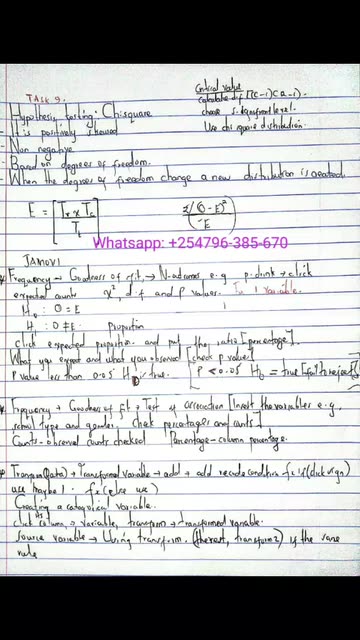 TASK 9.
Hypothesis testing: Chisquare
- It is positively skewed
- Non negative
- Based on degrees of freedom.
- When the degrees of freedom change a new distribution is created.
Critical value
calculate d.f [(C-1)(R-1)].
choose s-
Use chi square distribution.
E = [Tr x Tc / Tt]
Σ(O-E)² / E
Whatsapp: +254796-385-670
JAMOVI
* Frequency - Goodness of fit, → N-outcomes e.g → click
expected counts x², d.f and P values. For 1 variable.
H₀: O = E
H₁: O ≠ E. Proportion
click expected proportion and put the ratio [percentage].
What you expect and what you observed [check p value]
P value less than 0.05 H is true. P < 0.05 H₀ = true [fail to reject]
* Frequency + Goodness of fit + Test of association [Insert the variables e.g.,
school type and gender, check percentages and counts]
Counts-observed counts checked Percentage-column percentage.
* (Data) → Transformed variable → add + add recode condition fx if (click sign)
use maybe 1. fx (else use)
Creating a categorical variable.
click column, → variable, transform → transformed variable.
source variable → Using transform. (transform 2) if the same
rule